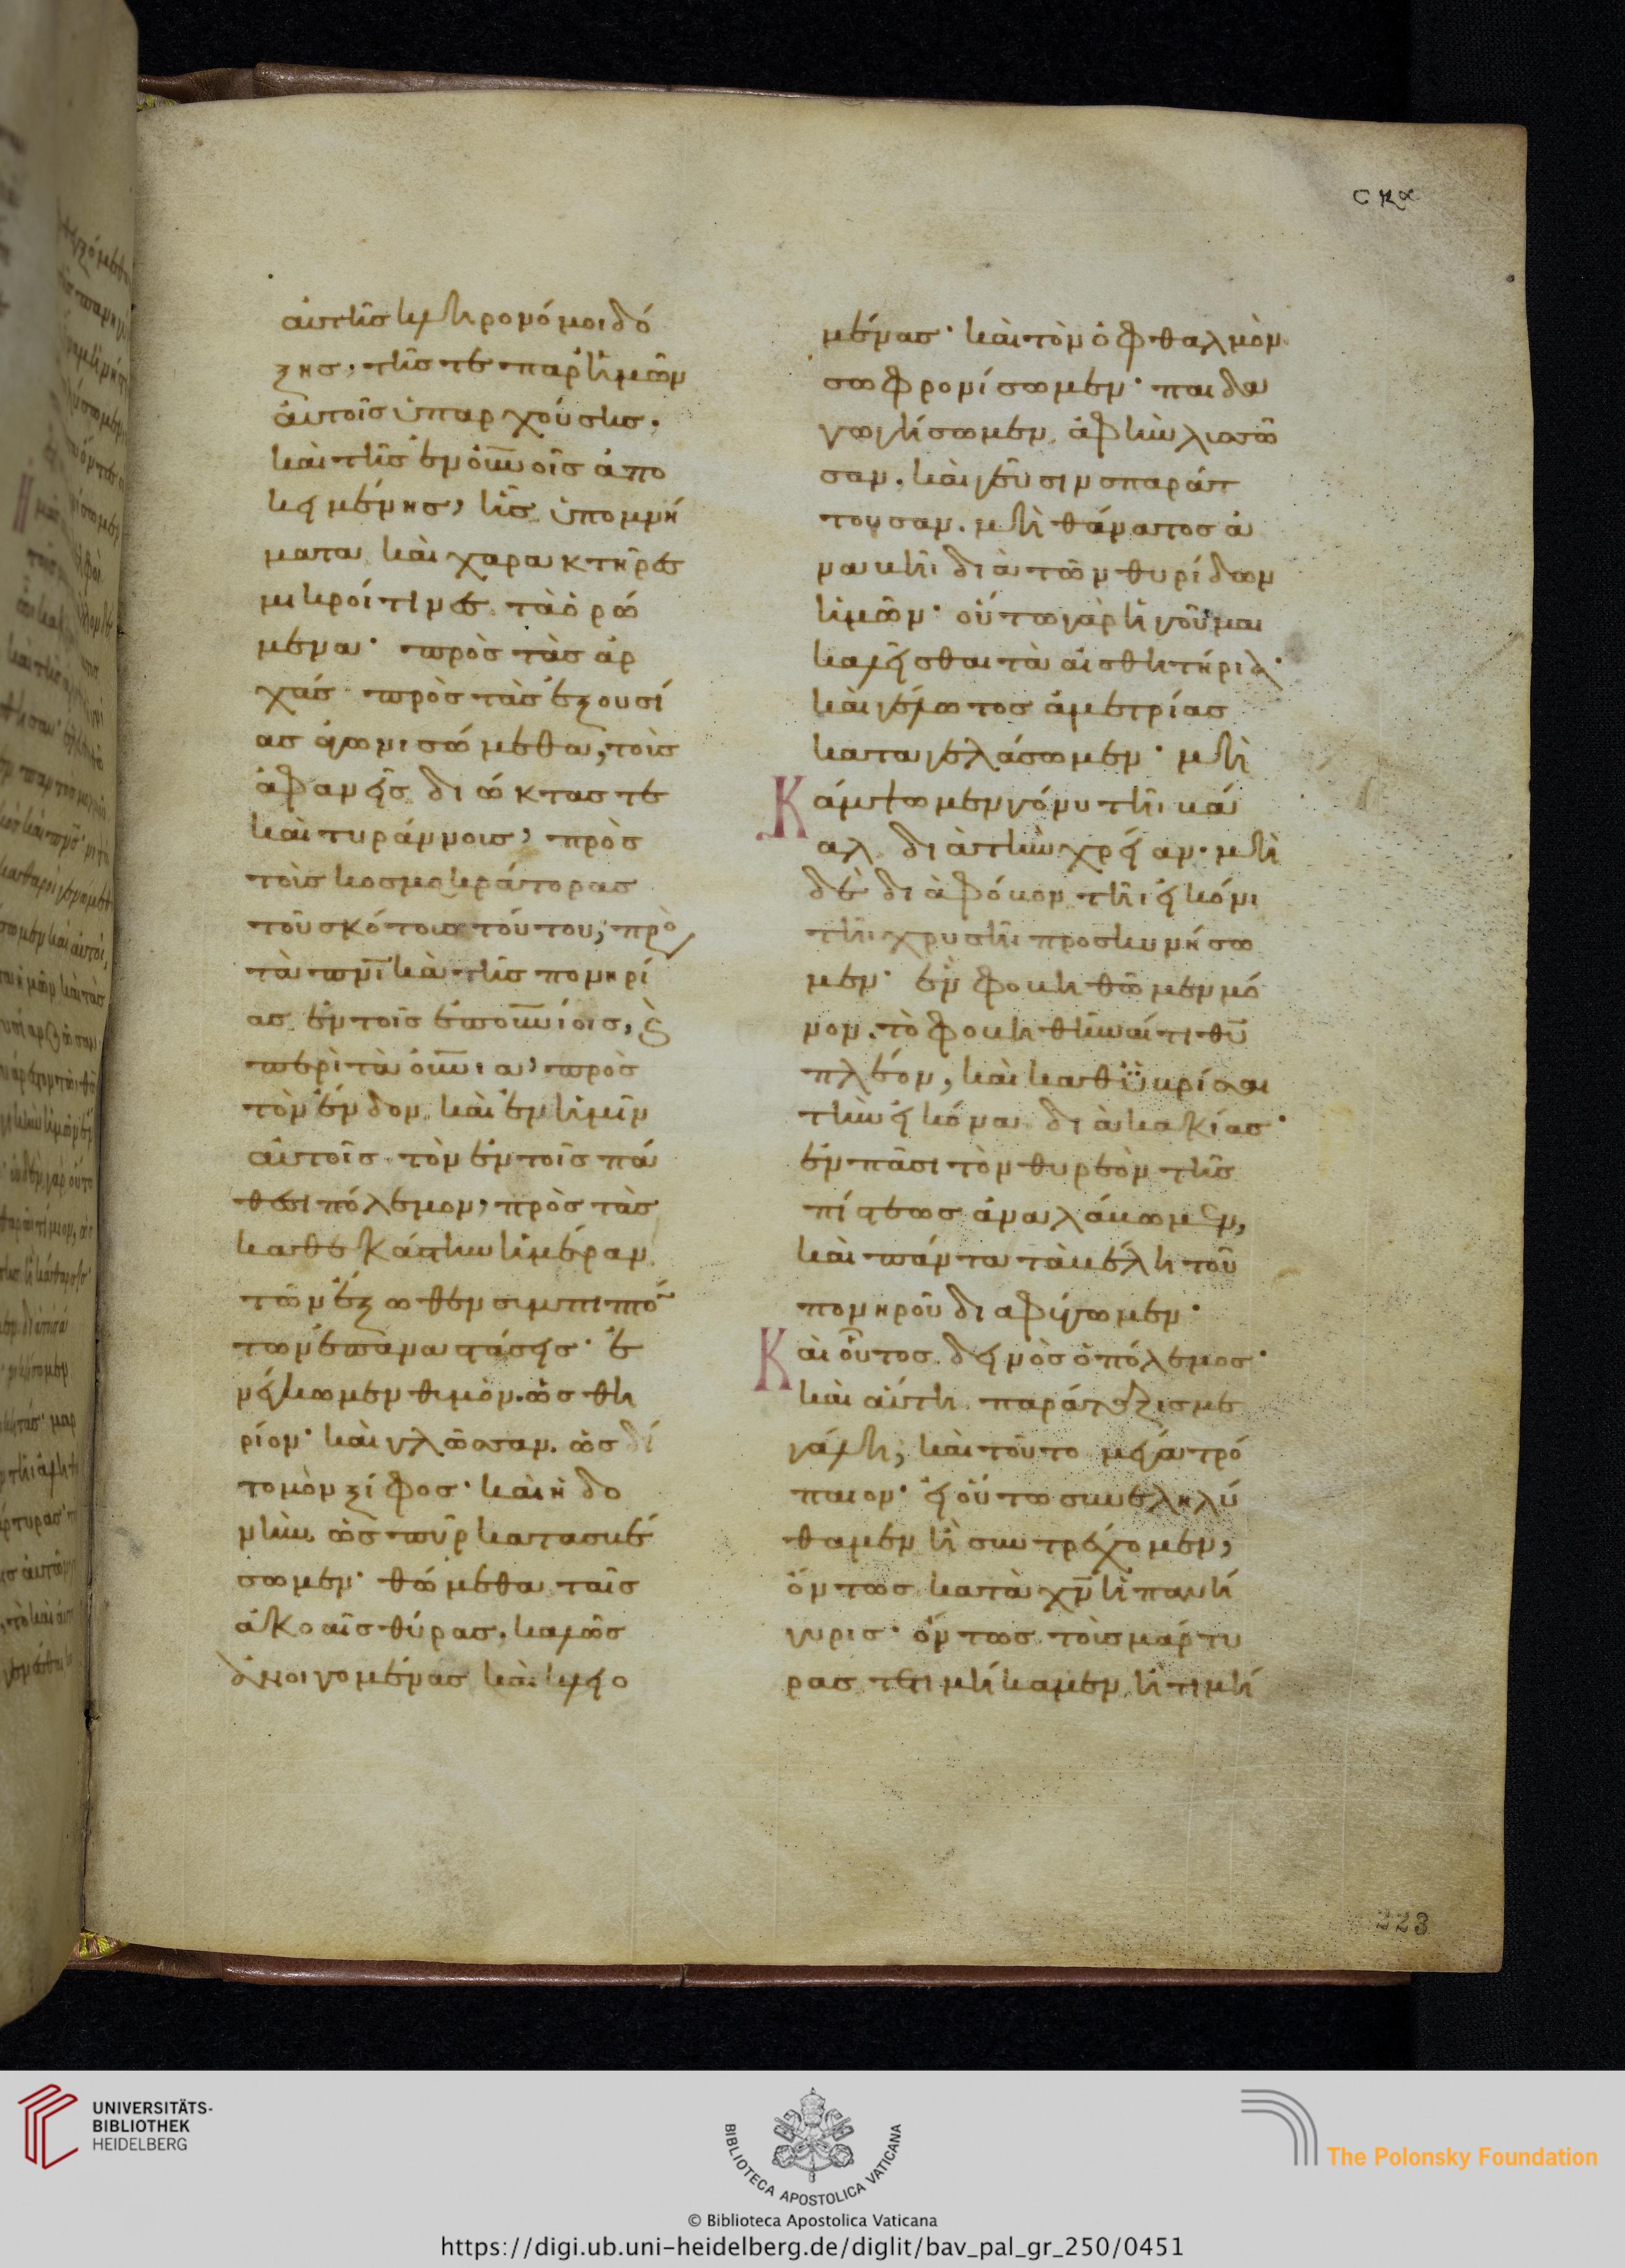 σκα
αὐτῆς κληρονόμοι δό
ξης, τῆς τε παρ' ἡμῶν
αὐτοῖς ὑπαρχούσης.
καὶ τῆς ἐν οὐ̅νοῖς ἀπο
κειμένης, ἧς ὑπομνή
ματα καὶ χαρακτῆρες
μικροί τινες τὰ ὁρώ
μενα· πρὸς τὰς ἀρ
χάς πρὸς τὰς ἐξουσί
ας ἀγωνισώμεθα, τοὺς
ἀφανεῖς διώκτας τε
καὶ τυράννους, πρὸς
τοὺς κοσμοκράτορας
τοῦ σκότους τούτου, πρὸς
τὰ πν̅ικὰ τῆς πονηρί
ας ἐν τοῖς ἐπουν̅ίοις, ϗ
περὶ τὰ οὐν̅ια, πρὸς
τὸν ἔνδον καὶ ἐν ἡμῖν
αὐτοῖς τὸν ἐν τοῖς πά
θεσι πόλεμον, πρὸς τὰς
καθεκάστην ἡμέραν
τῶν ἔξωθεν συμπιπτό
των ἐπαναστάσεις· ἐ
νέγκωμεν θυμὸν. ὡς θη
ρίον· καὶ γλῶσσαν. ὡς δί
τομον ξίφος· καὶ ἡδο
νὴν ὡς πῦρ κατασβέ
σωμεν· θώμεθα ταῖς
ἀκοαῖς θύρας, καλῶς
ἀνοιγομένας καὶ κλειο
μένας· καὶ τὸν ὀφθαλμὸν
σωφρονίσωμεν· παιδα
γωγήσωμεν ἀφὴν λυσσῶ
σαν. καὶ γεῦσιν σπαράτ
τουσαν. μὴ θάνατος ἀ
ναβῆι διὰ τῶν θυρίδων
ἡμῶν· οὕτω γὰρ ἡγοῦμαι
καλεῖσθαι τὰ αἰσθητήρια·
καὶ γέλωτος ἀμετρίας
καταγελάσωμεν· μὴ
κάμψωμεν γόνυ τῆι βά
αλ διὰ τὴν χρείαν· μὴ
δὲ διὰ φόβον τῆι εἰκόνι
τῆι χρυσῆι προσκυνήσω
μεν· ἓν φοβηθῶμεν μό
νον. τὸ φοβηθῆναί τι θυ̅
πλέον, καὶ καθυβρίσαι
τὴν εἰκόνα διὰ κακίας·
ἐν πᾶσι τὸν θυρεὸν τῆς
πίστεως ἀναλάβωμεν,
καὶ πάντα τὰ βέλη τοῦ
πονηροῦ διαφύγωμεν·
Καὶ οὗτος δεινὸς ὁ πόλεμος·
καὶ αὕτη παράταξις με
γάλη, καὶ τοῦτο μέγα τρό
παιον· εἰ οὕτω συνεληλύ
θαμεν ἢ συντρέχομεν,
ὄντως κατὰ χν̅ ἡ πανή
γυρις· ὄντως τοὺς μάρτυ
ρας τετιμήκαμεν ἢ τιμή
223
UNIVERSITÄTS-
BIBLIOTHEK
HEIDELBERG
BIBLIOTECA APOSTOLICA VATICANA
The Polonsky Foundation
© Biblioteca Apostolica Vaticana
https://digi.ub.uni-heidelberg.de/diglit/bav_pal_gr_250/0451